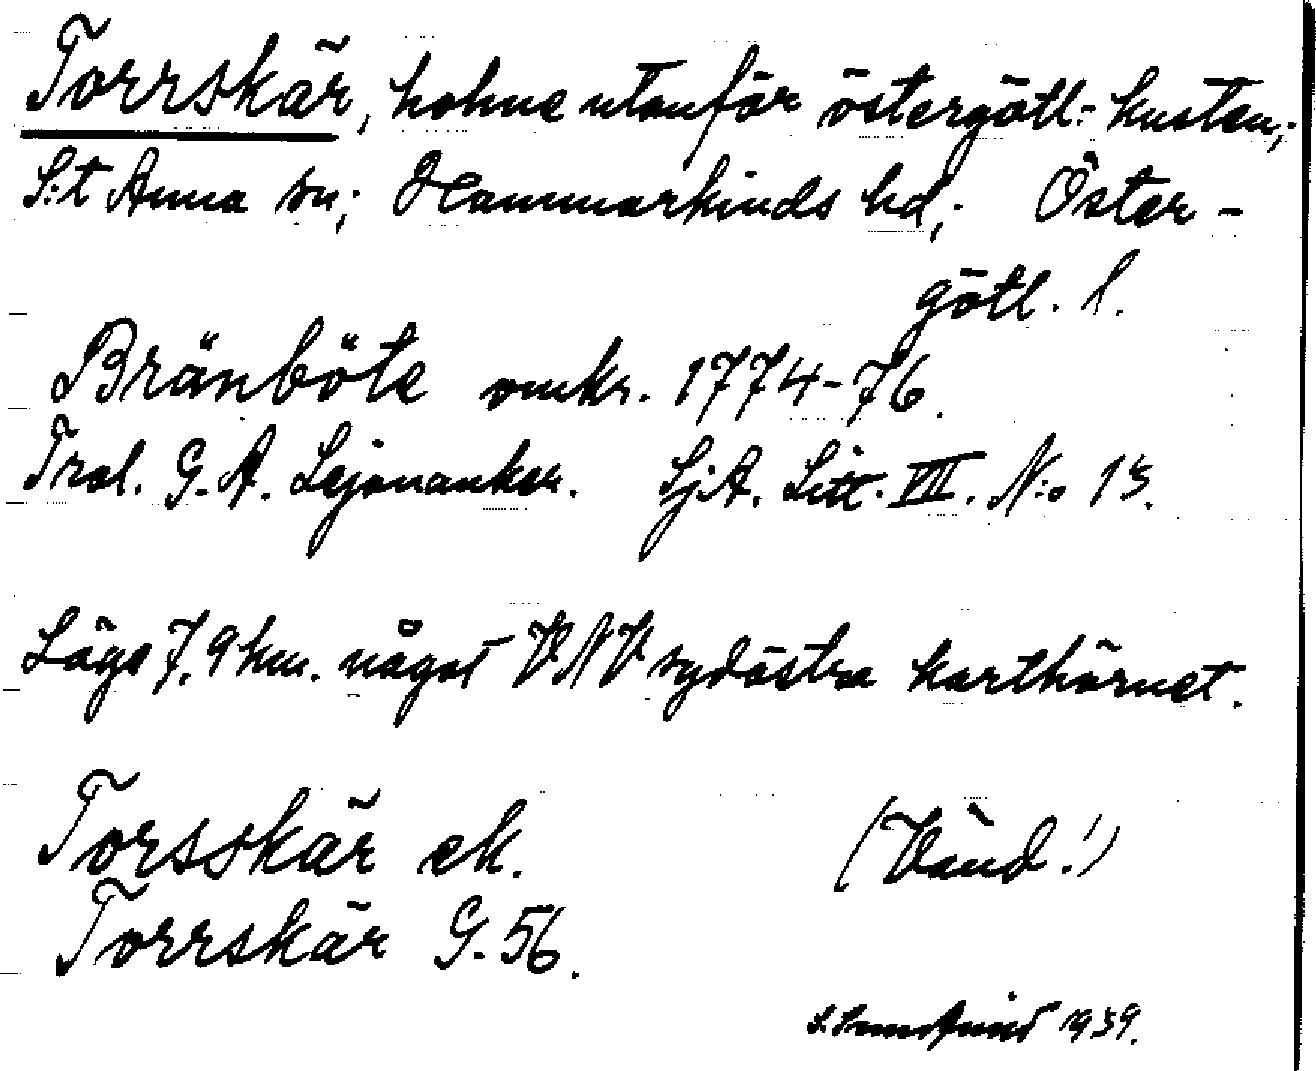 Torrskär, holme utanför östergötl:- kusten,;
S:t Anna sn; Hammarkinds hd,; Öster-
götl. l.
Bränböte omkr. 1774-76.
Trol. G. A. Lejonanker. SjA. Litt. VII. N:o 13.
Läge 7,9 km. något VNV sydöstra karthörnet.
Torsskär ek. (Vänd!)
Torrskär G. 56.
1939.